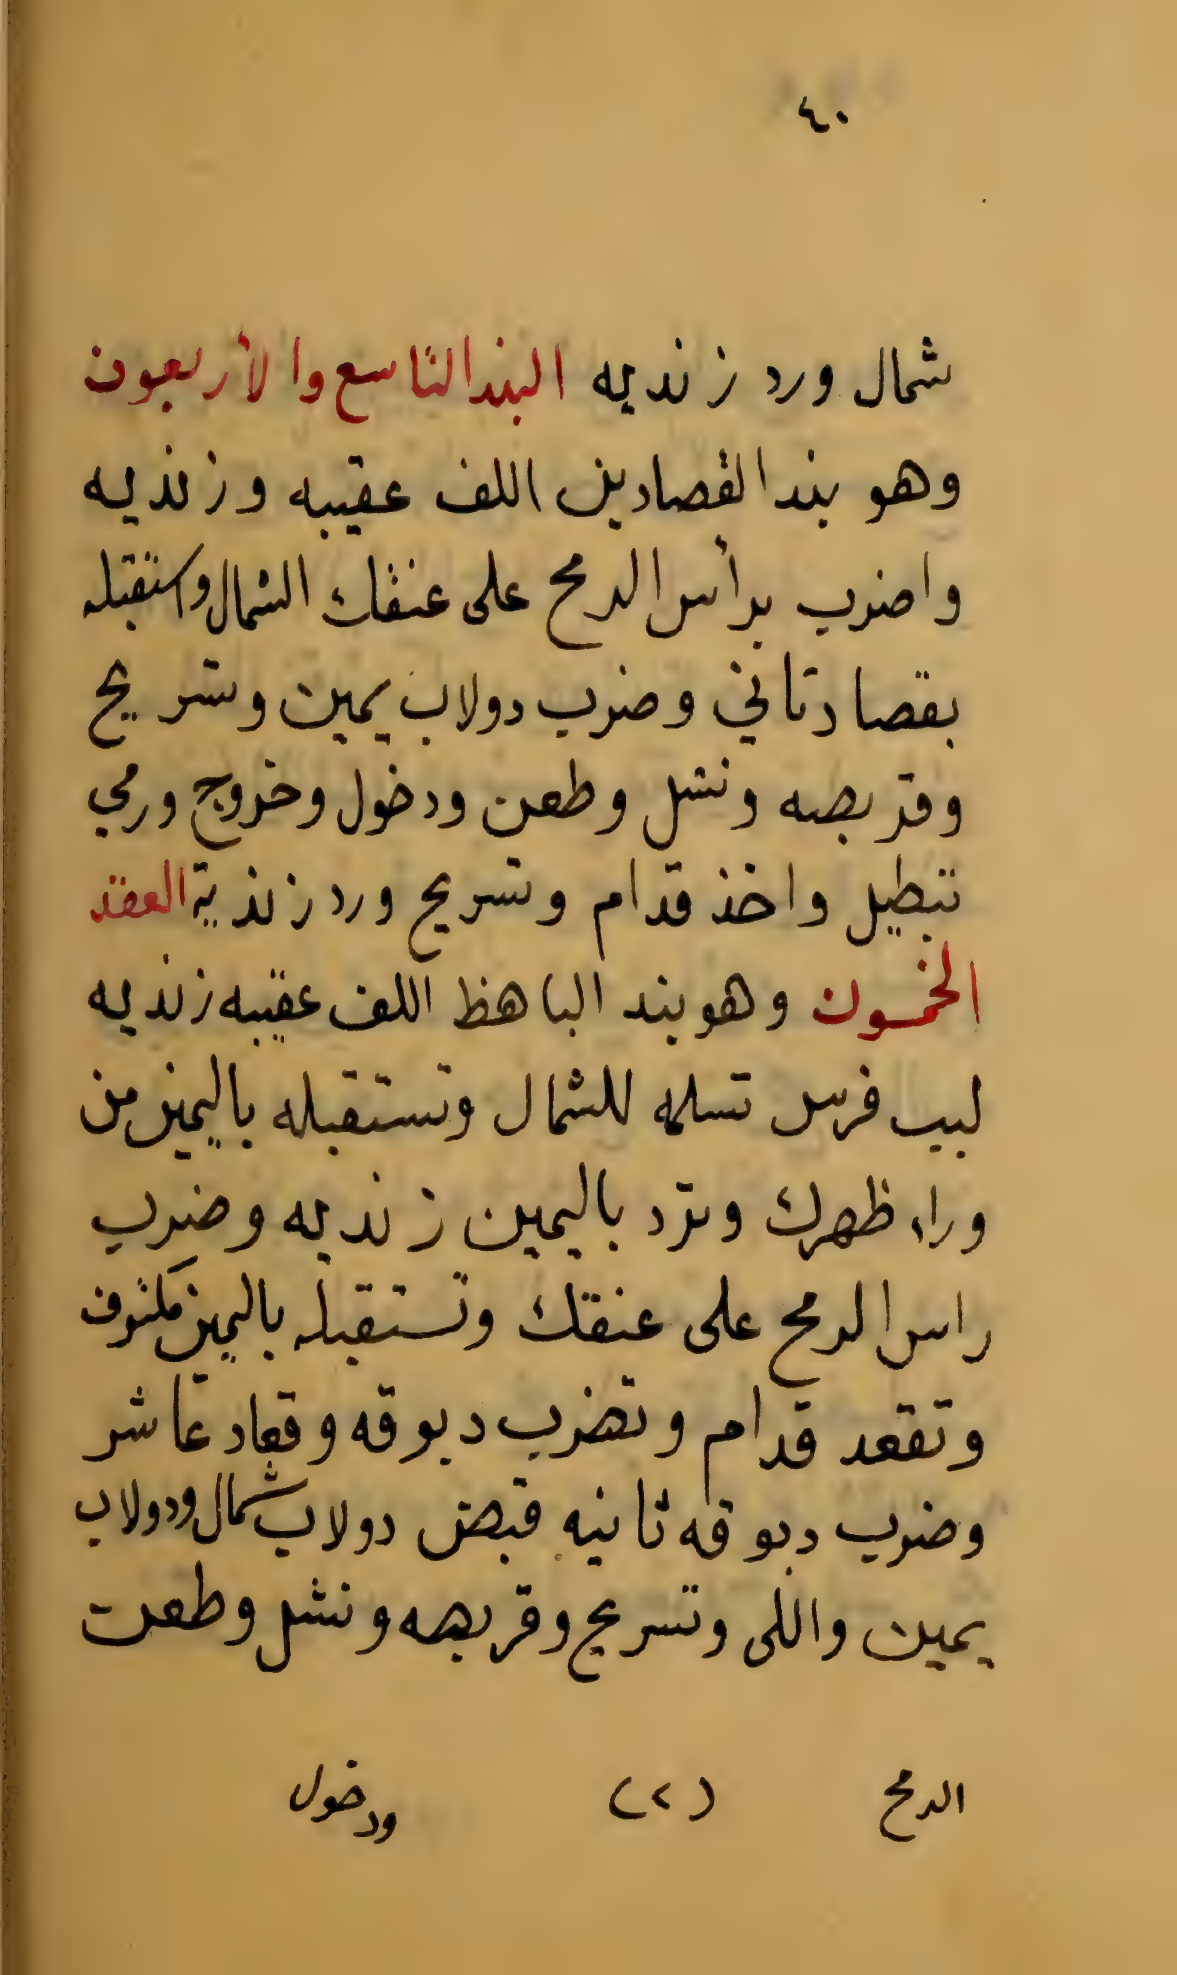 ٤٠
شمال ورد زنديه البند التاسع والأربعون
وهو بند القصادين اللف عقيبه وزنديه
واضرب برأس الرمح على عنقك الشمال واستقبله
بقصاد تاني وضرب دولاب يمين وتسريح
وقربصه ونشل وطعن ودخول وخروج ورمي
تبطيل واخذ قدام وتسريح ورد زندية العقد
الخمسون وهو بند الباهظ اللف عقيبه زنديه
لبب فرس تسلمه للشمال وتستقبله باليمين من
وراء ظهرك وترد باليمين زنديه وضرب
راس الرمح على عنقك وتستقبله باليمين مكتوف
وتقعد قدام وتضرب دبوقه وقعاد عاشر
وضرب دبوقه ثانيه قبض دولاب شمال ودولاب
يمين واللى وتسريح وقربصه ونشل وطعن
الرمح (٢) ودخول